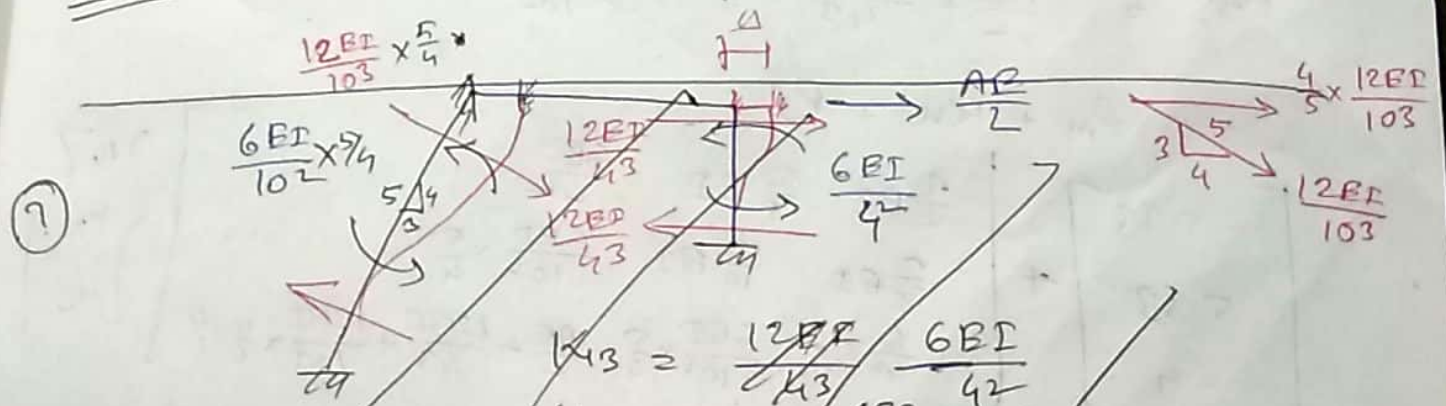 12EI/10³ × 5/4
Δ
6EI/10² × 5/4
5 4
3
12EI/4³
12EI/4³
6EI/4²
AE/2
4/5 × 12EI/10³
3 5
4
12EI/10³
?
K43 = 12EI/43 6EI/42